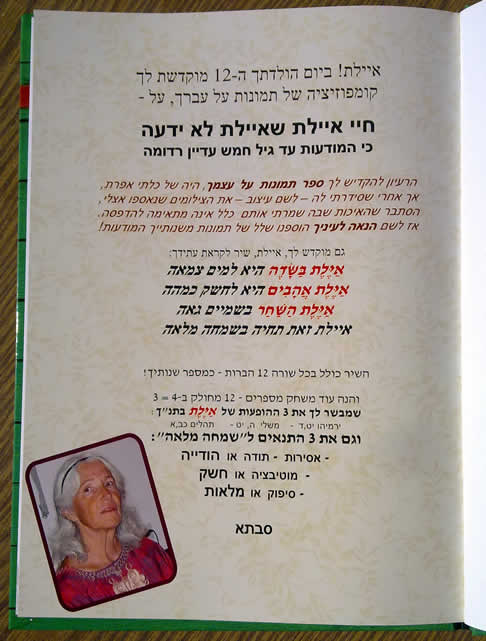 איילת! ביום הולדתך ה-12 מוקדשת לך
קומפוזיציה של תמונות על עברך, על -
חיי איילת שאיילת לא ידעה
כי המודעות עד גיל חמש עדיין רדומה
הרעיון להקדיש לך ספר תמונות על עצמך, היה של כלתי אפרת,
אך אחרי שסידרתי לה – לשם עיצוב – את הצילומים שנאספו אצלי,
הסתבר שהאיכות שבה שמרתי אותם כלל אינה מתאימה להדפסה.
אז לשם הנאה לעיניך הוספנו שלל של תמונות משנותייך המודעות!
גם מוקדש לך, איילת, שיר לקראת עתידך:
אַיֶּלֶת בַּשָּׂדֶה היא למים צמאה
אַיֶּלֶת אֲהָבִים היא לחשק כמהה
אַיֶּלֶת הַשַּׁחַר בשמיים גאה
איילת זאת תחיה בשמחה מלאה
השיר כולל בכל שורה 12 הברות - כמספר שנותיך!
והנה עוד משחק מספרים - 12 מחולק ב-4 = 3
שמבשר לך את 3 ההופעות של אַיֶּלֶת בתנ"ך:
ירמיהו יד,ה - משלי ה,יט - תהלים כב,א
וגם את 3 התנאים ל"שמחה מלאה":
- אסירות - תודה או הודייה
- מוטיבציה או חשק
- סיפוק או מלאות
סבתא